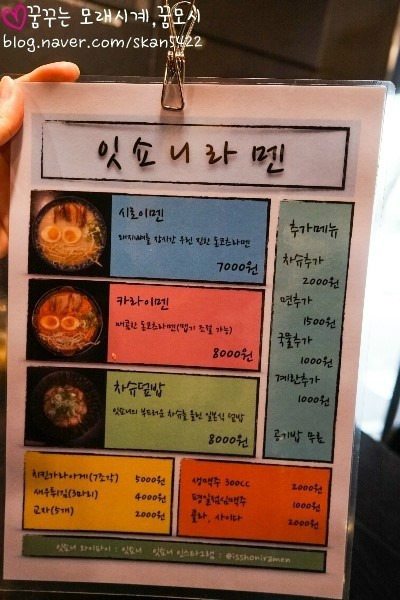 꿈꾸는 모래시계,꿈모시
blog.naver.com/skan5422
잇쇼니라멘
시로이멘
돼지뼈를 장시간 우린 진한 돈코츠라멘
7000원
카라이멘
매콤한 돈코츠라멘(맵기 조절 가능)
8000원
차슈덮밥
잇쇼니의 부드러운 차슈를 올린 일본식 덮밥
8000원
추가메뉴
차슈추가
2000원
면추가
1500원
국물추가
1000원
계란추가
1000원
공기밥 무료
치킨가라아게(7조각) 5000원
새우튀김(3마리) 4000원
교자(5개) 2000원
생맥주 300cc 2000원
평일점심맥주 1000원
콜라, 사이다 2000원
잇쇼니 와이파이 : 잇쇼니 잇쇼니 인스타그램 : @isshoniramen